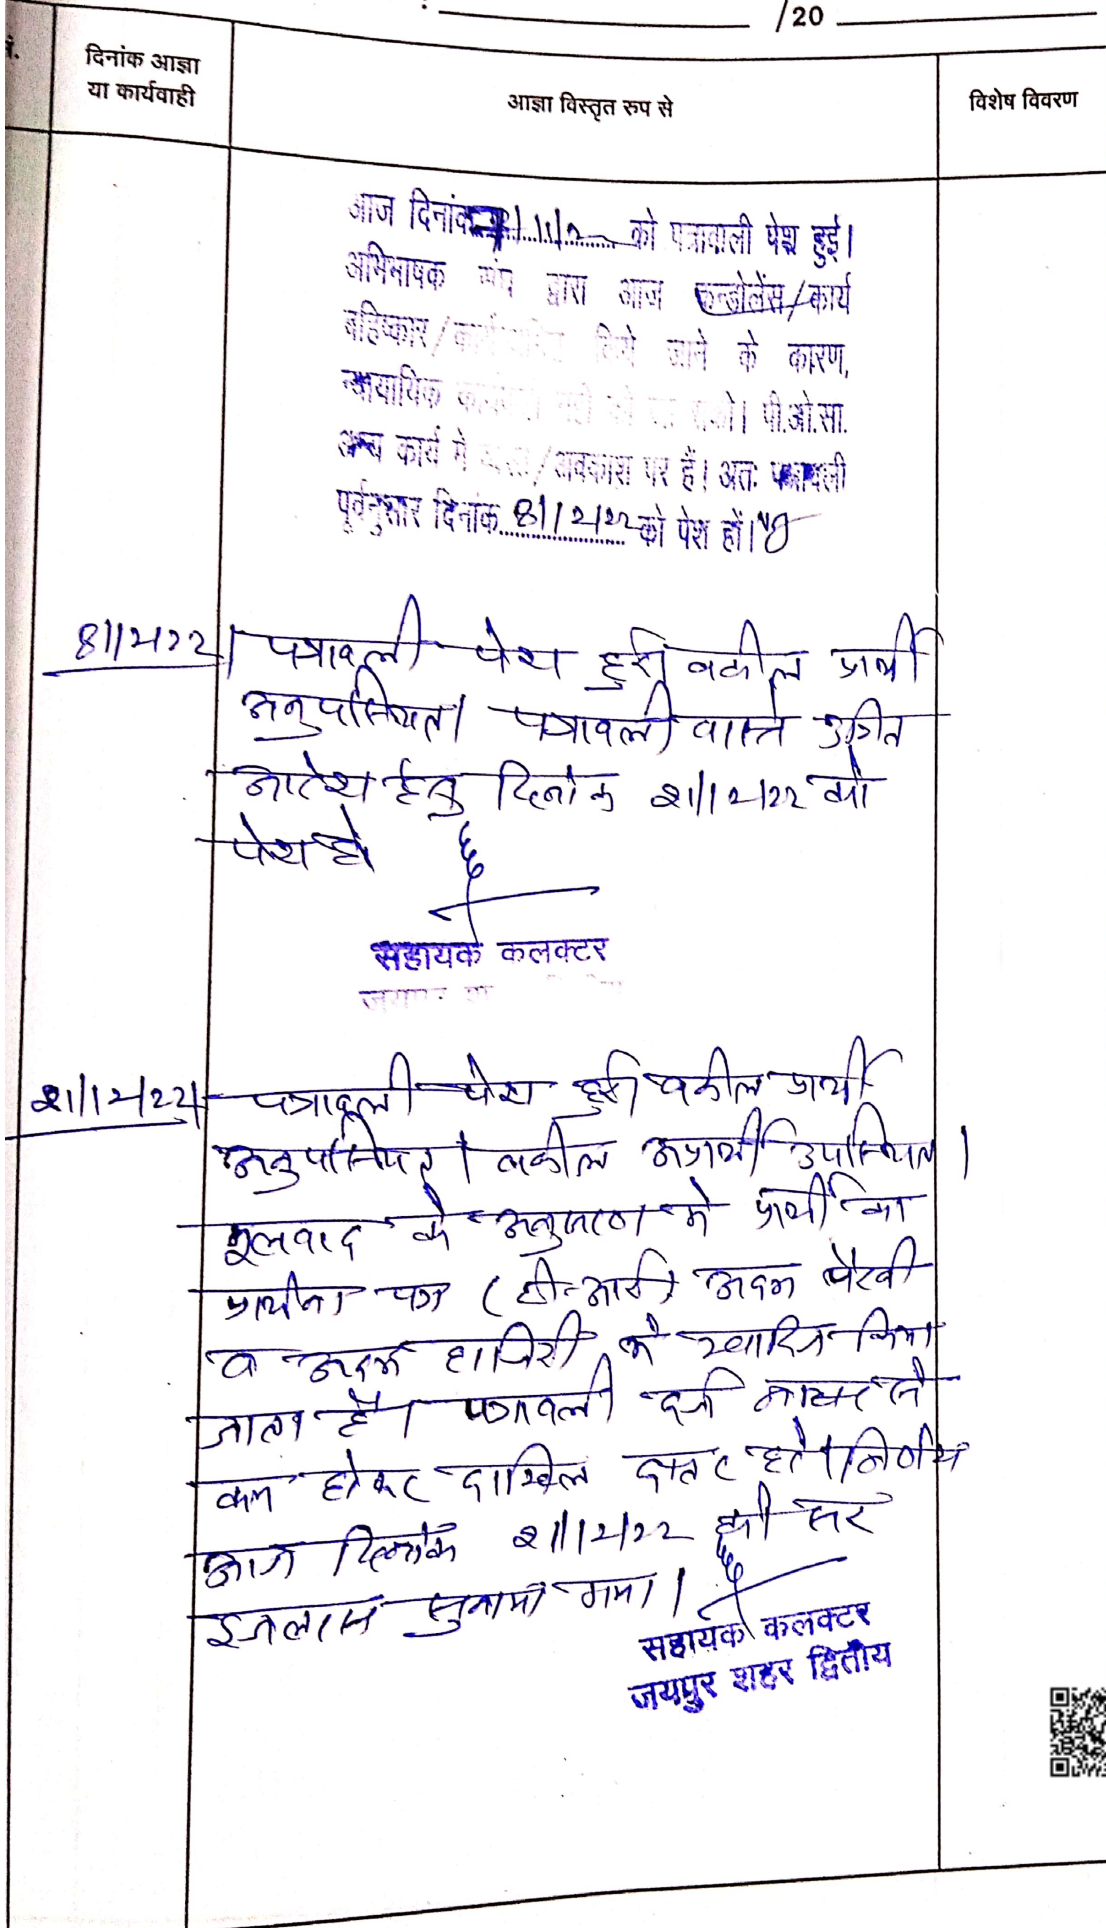 /20
दिनांक आज्ञा
या कार्यवाही
आज्ञा विस्तृत रुप से
विशेष विवरण
आज दिनांक को पत्रावली पेश हुई।
अभिभाषक संघ द्वारा आज कन्डोलेंस/कार्य
बहिष्कार/कार्य किये जाने के कारण,
न्यायायिक नहीं की जा सकी। पी.ओ.सा.
अन्य कार्य में व्यस्त/अवकाश पर हैं। अतः पत्रावली
पूर्वनुसार दिनांक 8/12/22 को पेश हों।
8/12/22
पत्रावली पेश हुई। वकील प्रार्थी
अनुपस्थित। पत्रावली वास्ते उचित
आदेश हेतु दिनांक 21/12/22 को
पेश हो
सहायक कलक्टर
21/12/22
पत्रावली पेश हुई। वकील प्रार्थी
अनुपस्थित। वकील अप्रार्थी उपस्थित।
मूलवाद के अनुसरण में प्रार्थी का
प्रार्थना पत्र (टी-आई) अदम पैरवी
व अदम हाजिरी में खारिज किया
जाता है। पत्रावली दर्ज नम्बर से
कम होकर दाखिल दफ्तर होवे। निर्णय
आज दिनांक 21/12/22 को सरे
इजलास सुनाया गया।
सहायक कलक्टर
जयपुर शहर द्वितीय